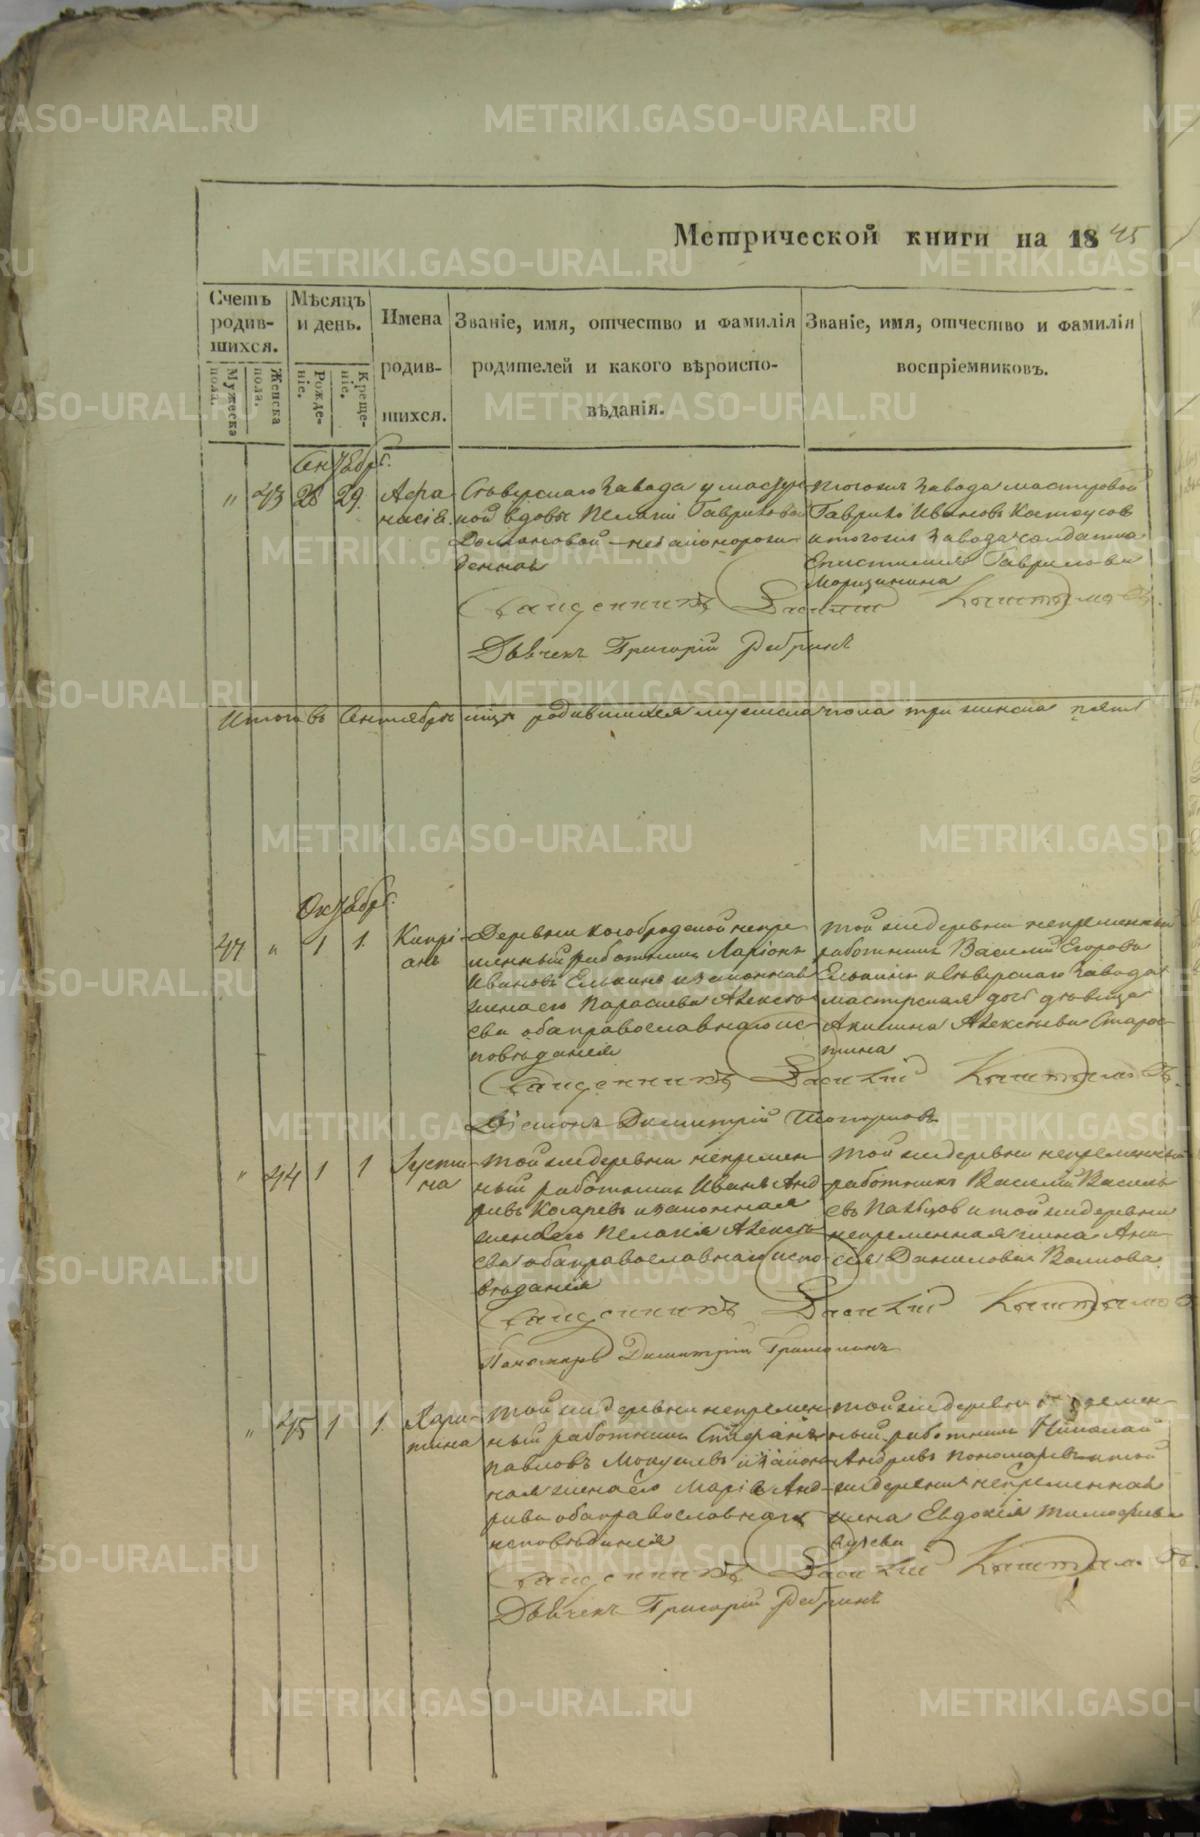 Метрической книги на 1845
Счетъ родив-шихся.
Мужеска пола.
Женска пола.
Мѣсяцъ и день.
Рожде-ніе.
Креще-ніе.
Имена
родив-
шихся.
Званіе, имя, отчество и фамилія
родителей и какого вѣроиспо-
вѣданія.
Званіе, имя, отчество и фамилія
воспріемниковъ.
Сентябрь.
" 43 28 29.
Афа
насія.
Сѣверскаго завода у мастер
ской вдовы Пелагіи Гавриловой
незаконорож
денная
Тогожъ завода мастеровой
Гаврило Ивановъ
и тогожъ завода солдатка
Епистимия Гаврилова
Священникъ Василій Кыштымовъ.
Дьячекъ Григорій Ребринъ
Итого въ Сентябрѣ мцѣ родившихся мужеска пола три женска пять
Октябрь.
47 " 1 1
Кипрі-
анъ
Деревни Кособродской непре
менный работникъ Ларіонъ
Ивановъ Елькинъ и законная
жена его Параскева Алексѣ
ева оба православнаго ис
повѣданія
Той же деревни непременный
работникъ Василій Егоровъ
Елькинъ и Сѣверскаго завода
мастерская дочь девица
Акилина Алексѣева Старос
тина
Священникъ Василій Кыштымовъ.
Діаконъ Димитрій Топорковъ
" 44 1 1
Іусти
на
Той же деревни непремен
ный работникъ Иванъ Анд
реевъ Косаревъ и законная
жена его Пелагія Алексѣ
ева оба православнаго испо
вѣданія
Той же деревни непременный
работникъ Василій Василь
евъ и той же деревни
непременная жена Ани
сія Данилова Волкова
Священникъ Василій Кыштымовъ
Пономарь Димитрій
" 45 1 1
Хари
тина
Той же деревни непремен
ный работникъ Стефанъ
Павловъ и закон
ная жена его Марія Анд
реева оба православнаго
исповѣданія
Той же деревни непремен-
ный работникъ Николай
Андреевъ Пономаревъ и той
же деревни непременная
жена Евдокія Тимофеева
Священникъ Василій Кыштымовъ.
Дьячекъ Григорій Ребринъ
METRIKI.GASO-URAL.RU